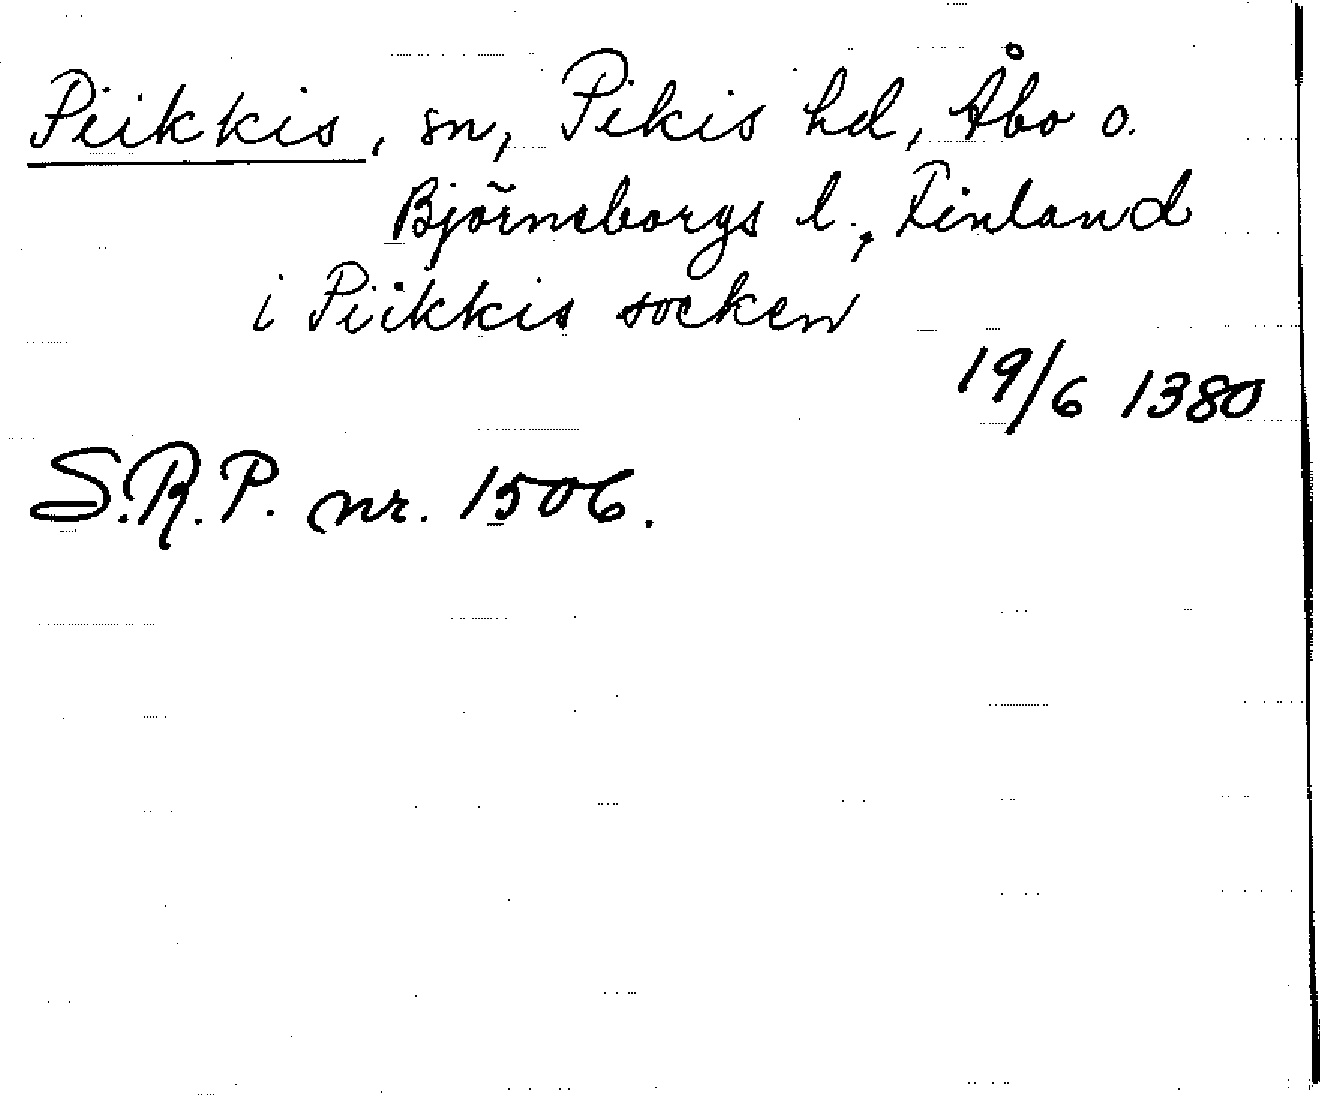 Piikkis, sn, Pikis hd, Åbo o.
Björneborgs l., Finland
i Piikkis socken
19/6 1380
S.R.P. nr. 1506.